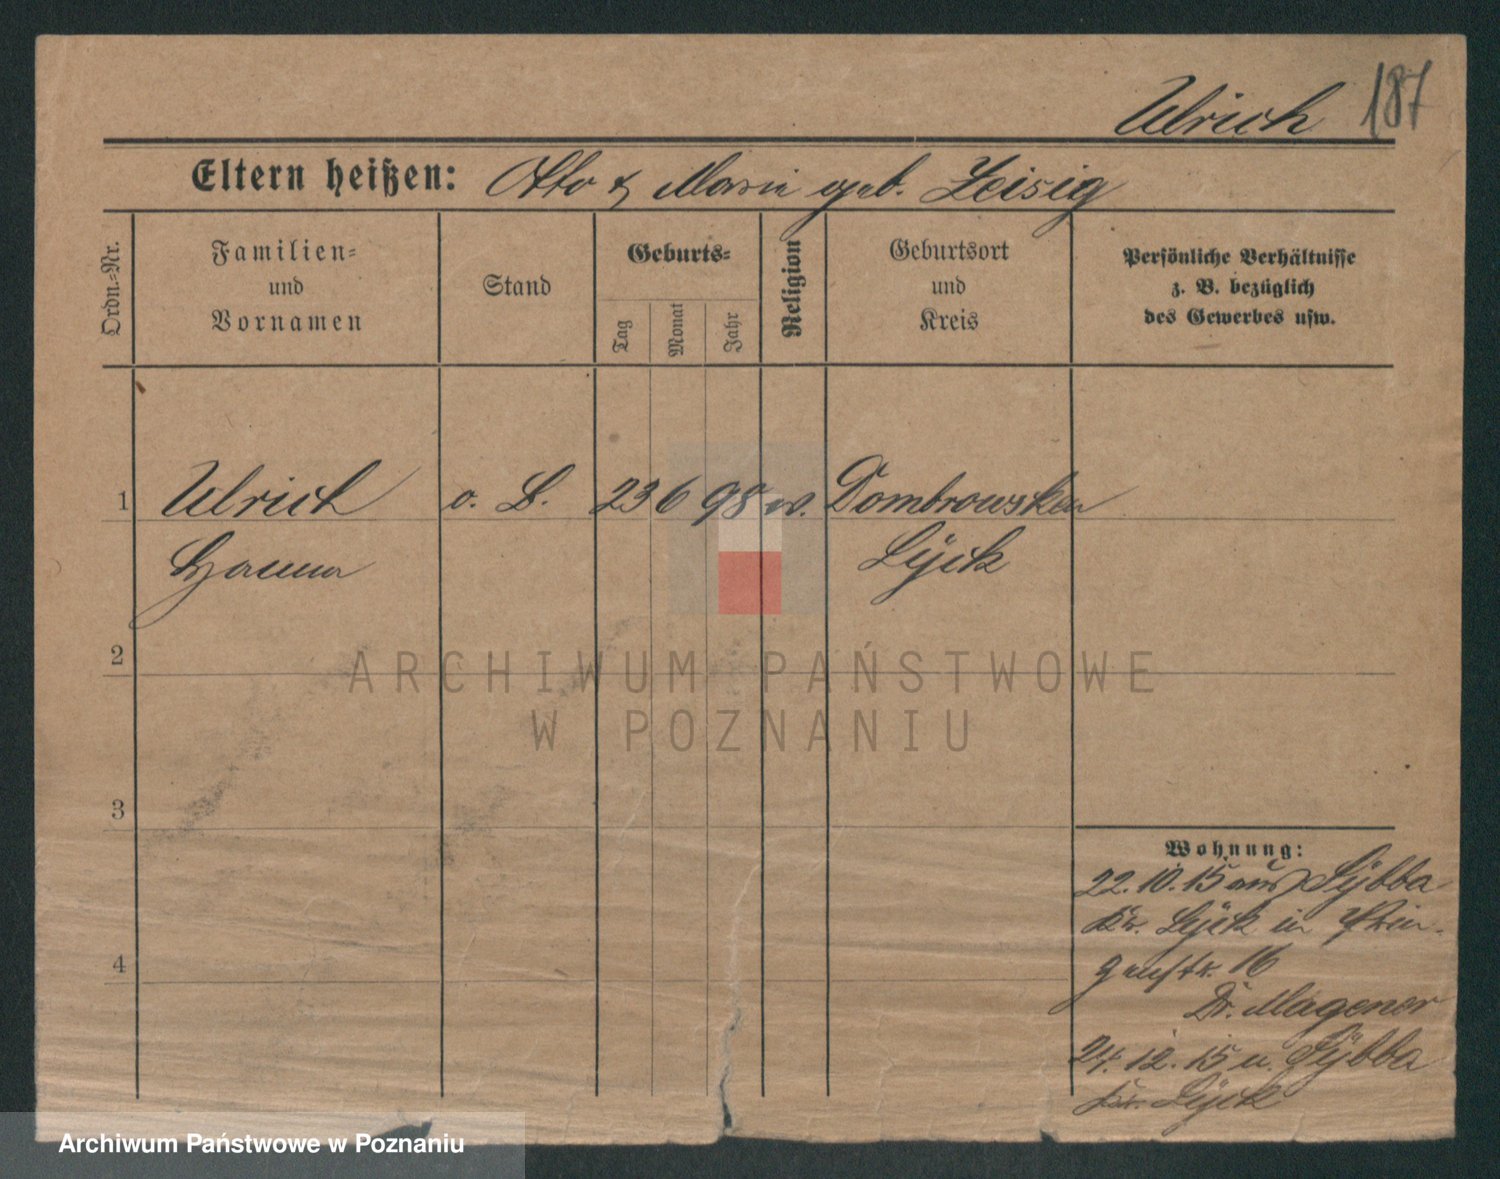 Ulrich 187
Eltern heißen: Otto & Marie geb. Zeisig
Ordn.=Nr.
Familien=
und
Vornamen
Stand
Geburts=
Tag
Monat
Jahr
Religion
Geburtsort
und
Kreis
Persönliche Verhältnisse
z. B. bezüglich
des Gewerbes usw.
1 Ulrich o. B. 23 6 98 w. Dombrowsken
Hanna Lÿck
2
3
4
Wohnung:
22.10.15 aus Sÿbba
Kr. Lÿck in
str. 16
Dr. Magener
24.12.15 n. Sÿbba
Kr. Lÿck
ARCHIWUM PAŃSTWOWE
W POZNANIU
Archiwum Państwowe w Poznaniu